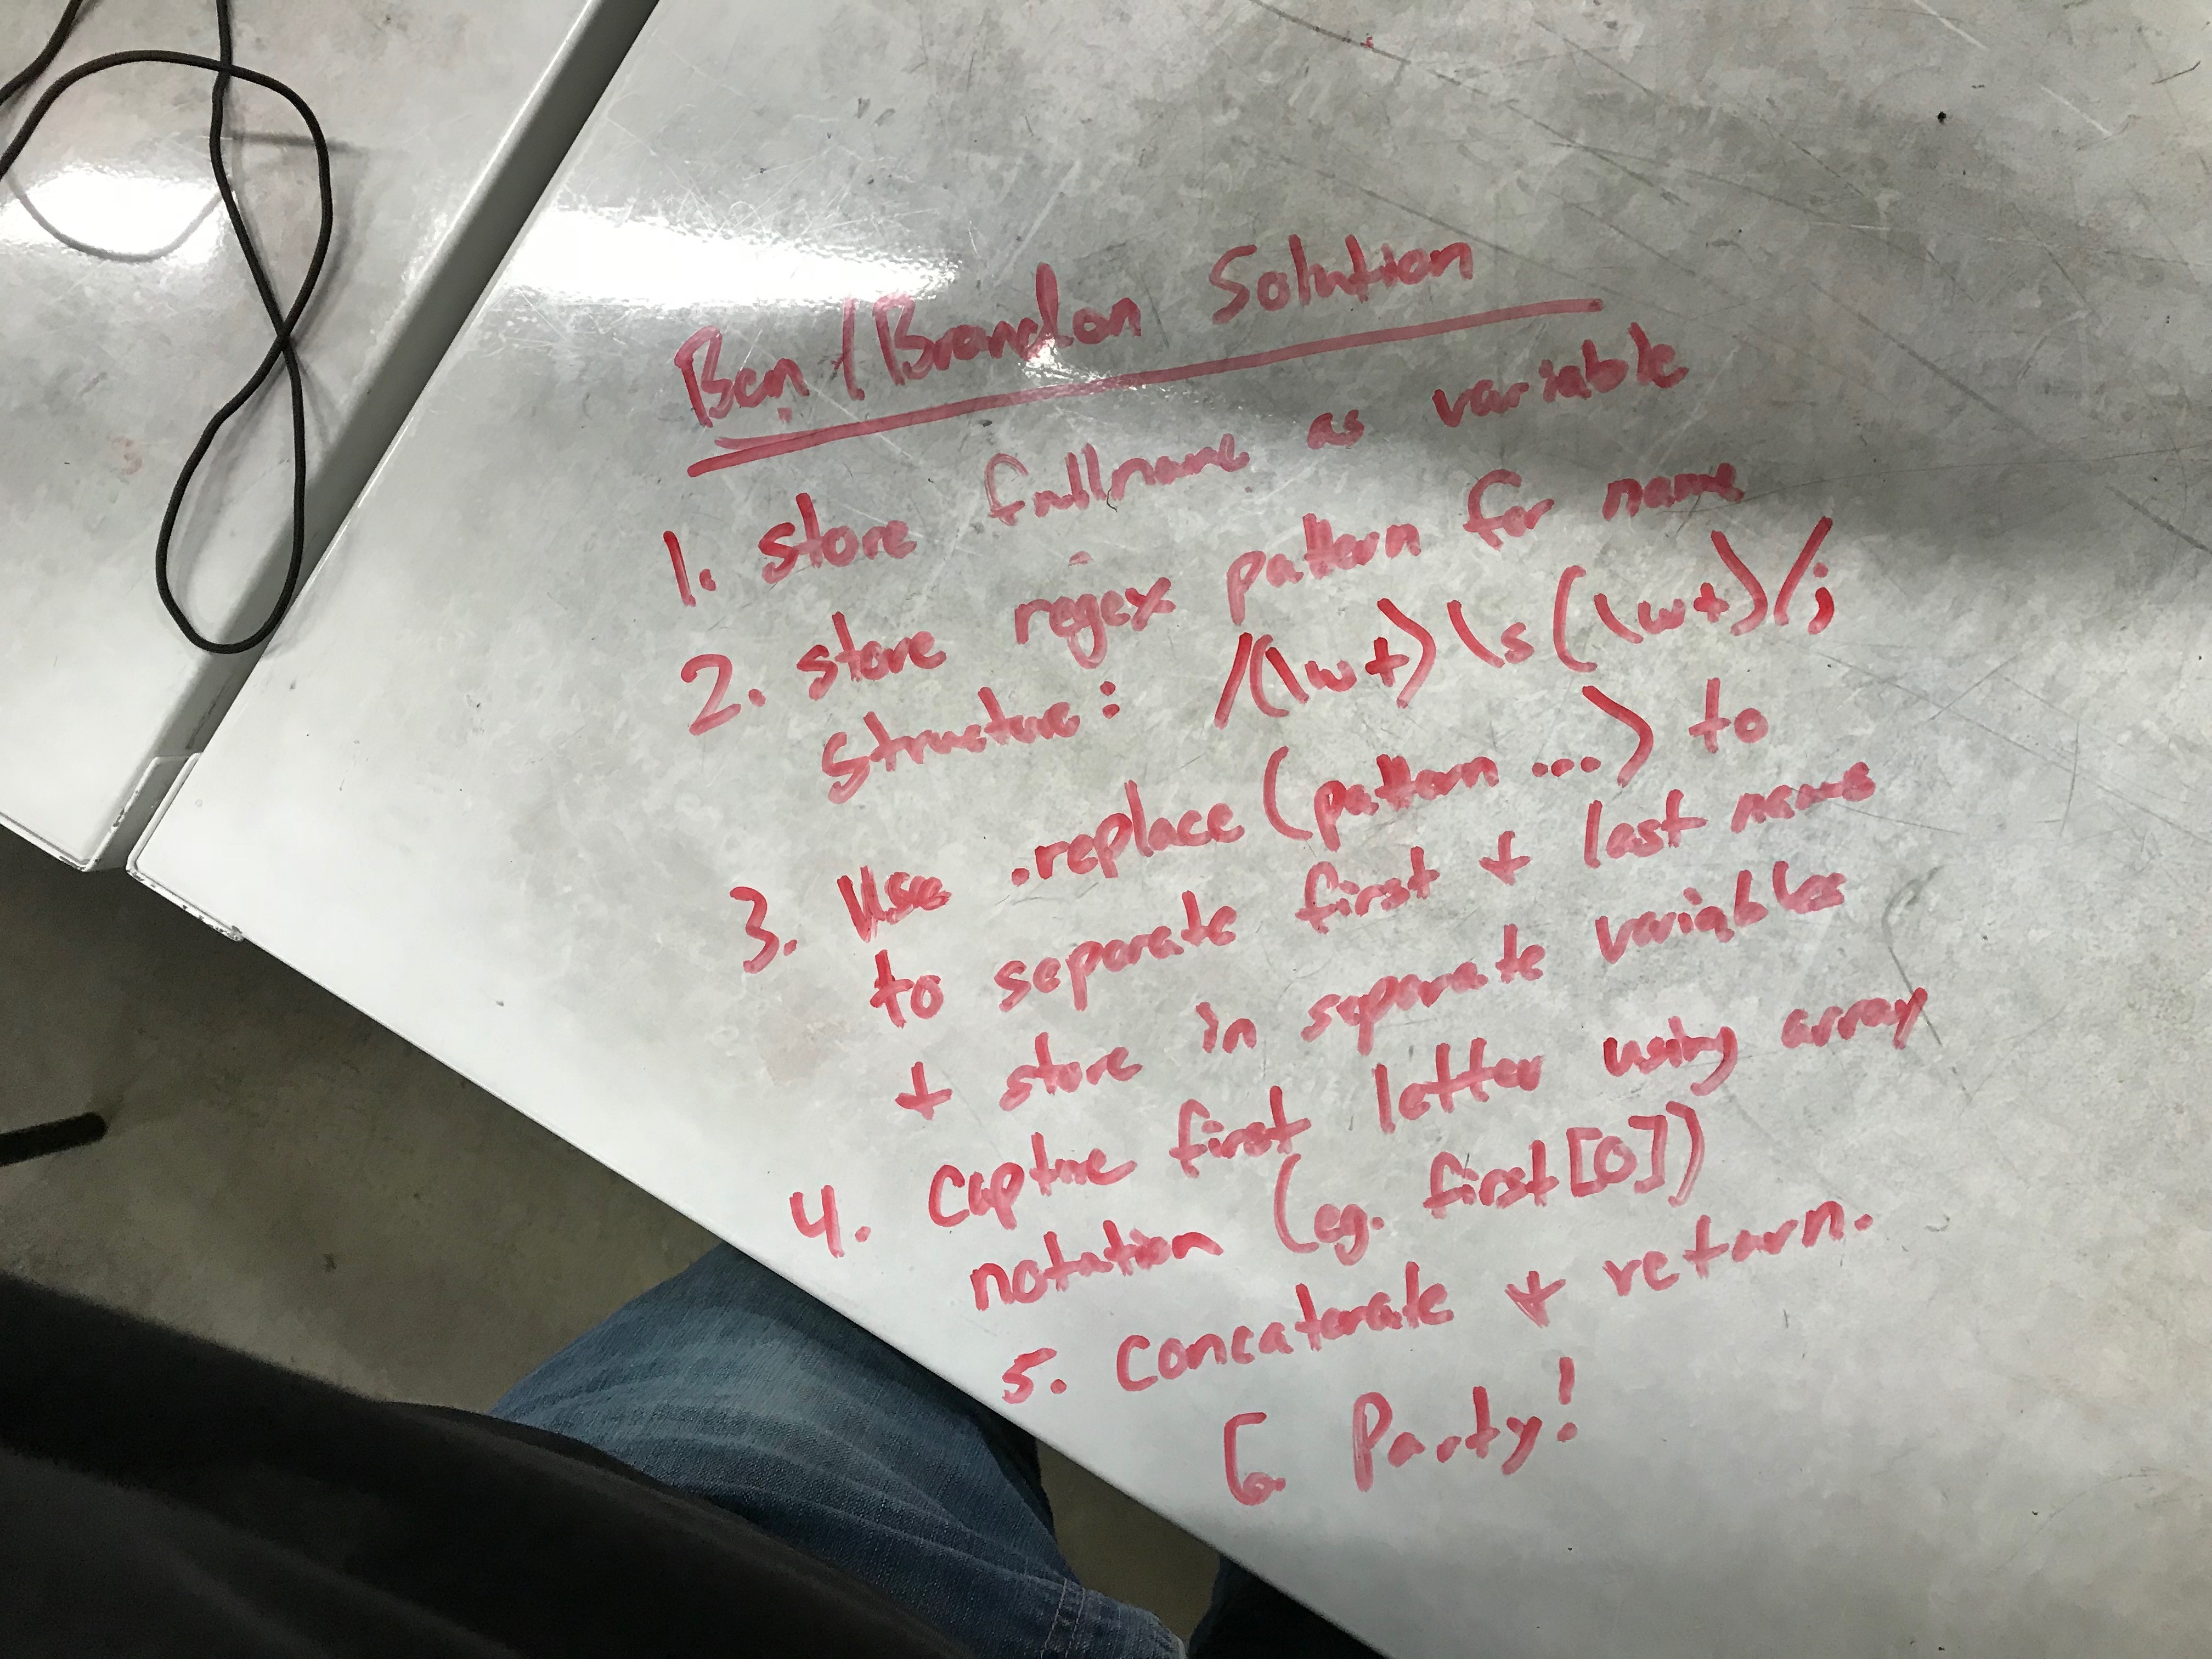 Ben / Brandon Solution
1. store fullname as variable
2. store regex pattern for name
structure: /(\w+)\s(\w+)/;
3. Use .replace(pattern ...) to
to separate first + last name
+ store in separate variables
4. Capture first letter using array
notation (eg. first[0])
5. Concatenate + return.
6. Party!